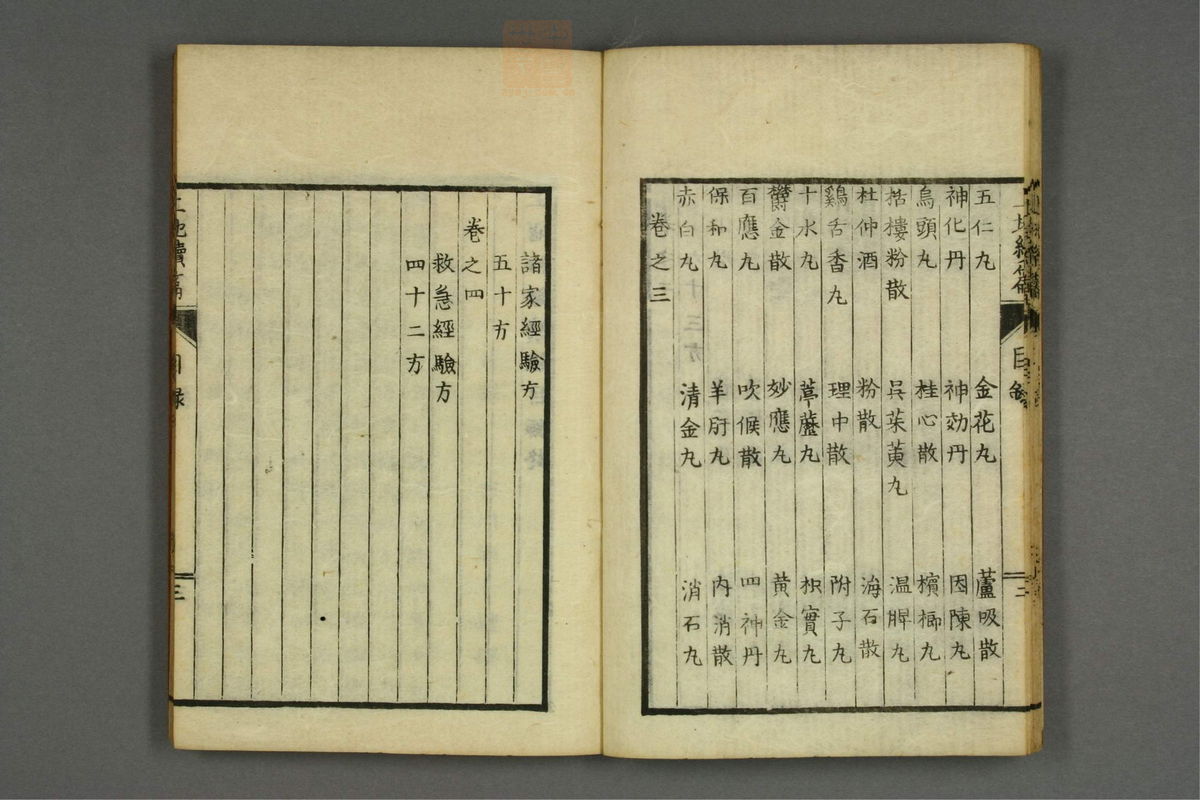 五仁丸 金花丸 蘆吸散
神化丹 神効丹 因陳丸
烏頭丸 桂心散 檳榔丸
栝樓粉散 呉茱萸丸 温脾丸
杜仲酒 粉散 海石散
鷄舌香丸 理中散 附子丸
十水丸 葶藶丸 枳實丸
欝金散 妙應丸 黄金丸
百應丸 吹喉散 四神丹
保和丸 羊胻丸 内消散
赤白丸 清金丸 消石丸
卷之三
諸家經驗方
五十方
卷之四
救急經驗方
四十二方
目録
三